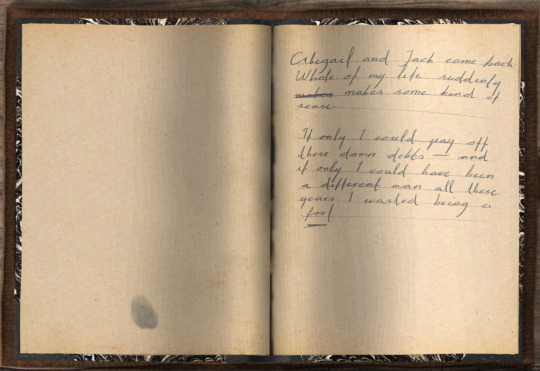 Abigail and Jack came back.
Whole of my life suddenly
makes makes some kind of
sense.
If only I could pay off
these damn debts — and
if only I could have been
a different man all these
years I wasted being a
fool